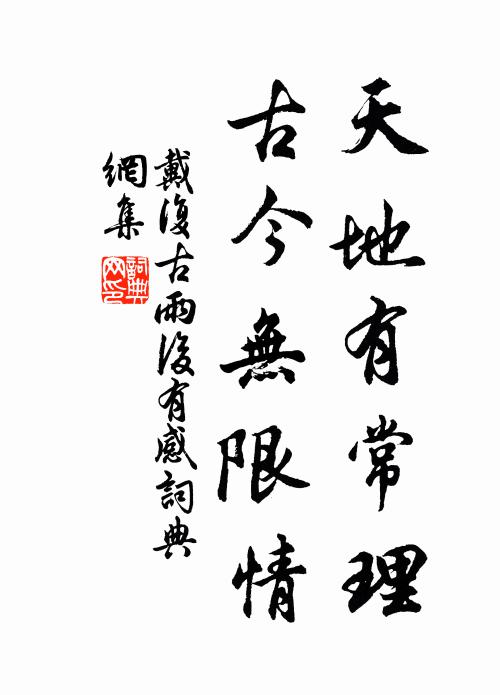 天地有常理
古今無限情
戴復古雨後有感詞典
網集
詞典網印